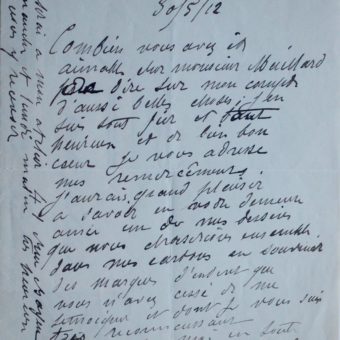 30/5/12
Combien vous avez été
aimable cher monsieur Maillard
dire sur mon compte
d'aussi belles choses, j'en
suis tout fier et tout
heureux et de bien bon
coeur je vous adresse
mes remerciements.
J'aurais grand plaisir
à savoir en votre demeure
ainsi un de mes dessins
que nous choisirions ensemble
dans mes cartons en souvenir
des marques d'estime que
vous n'avez cessé de me
témoigner et dont je vous suis
très reconnaissant
en tout
mon atelier
matin